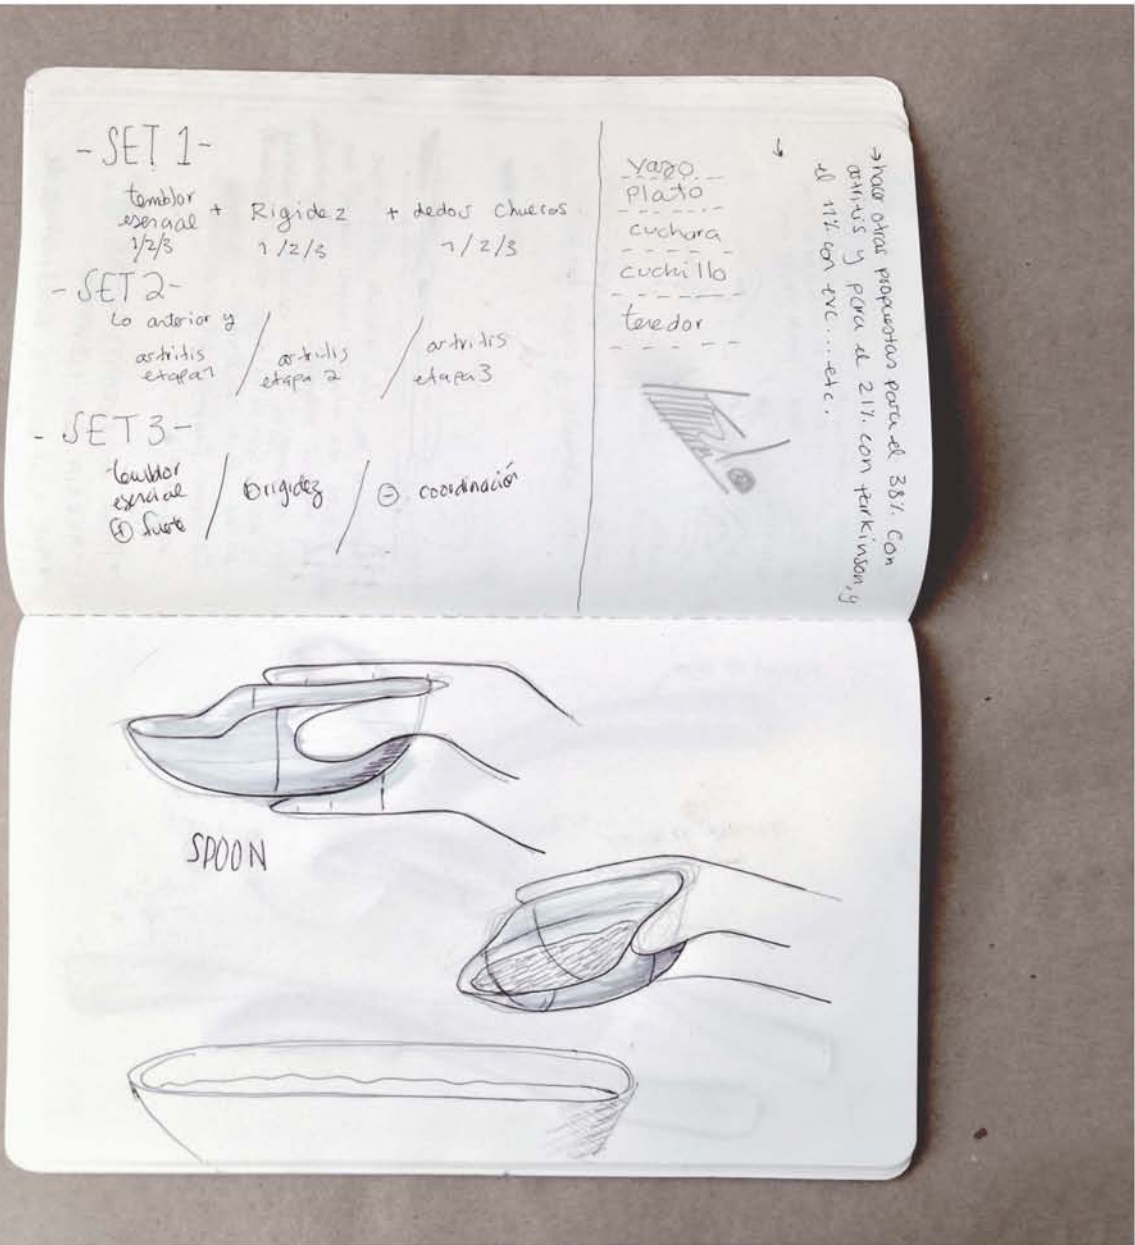 - SET 1 -
temblor
esencial + Rigidez + dedos chuecos
1/2/3 1/2/3 1/2/3
- SET 2 -
Lo anterior y
artritis / artritis / artritis
etapa 1 etapa 2 etapa 3
- SET 3 -
temblor
esencial / rigidez / ⊖ coordinación
⊕ fuerte
vaso
plato
cuchara
cuchillo
tenedor
→ hacer otras propuestas para el 38% con
artritis y para el 21% con parkinson, y
el 17% con evc.....etc.
SPOON